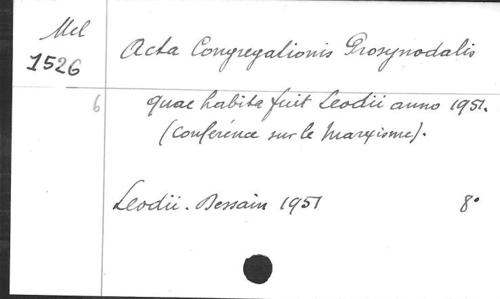 Mel
1526
6
Acta Congregationis Prosynodalis
quae habita fuit Leodii anno 1951.
(Conférence sur le Marxisme).
Leodii. Dessain 1951 8°